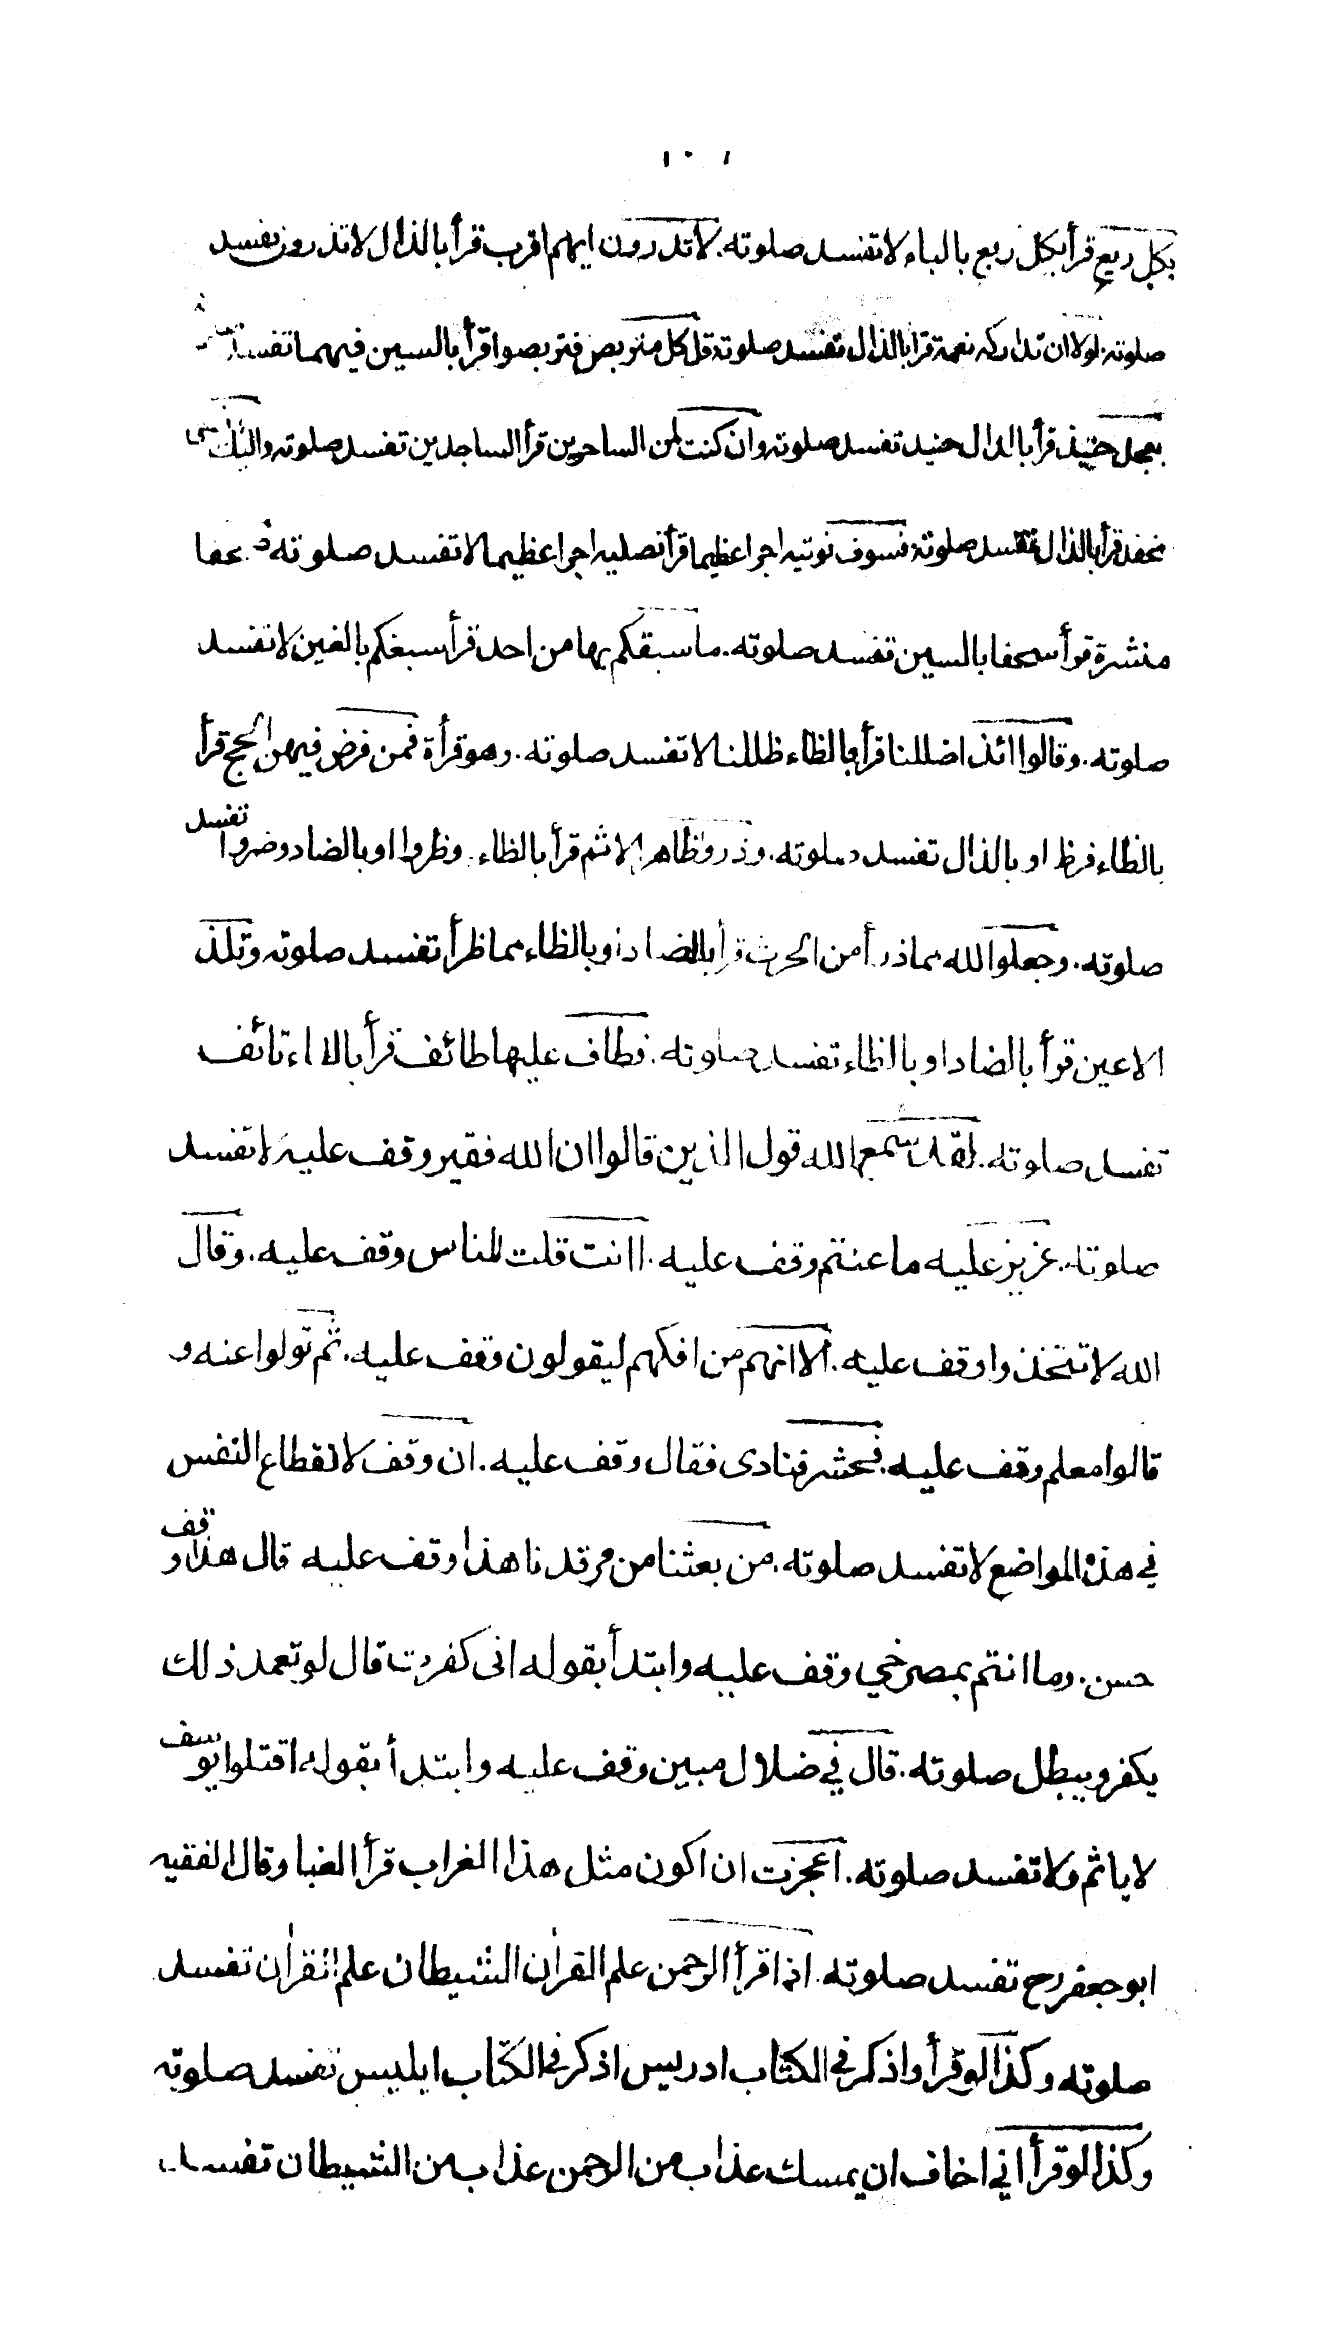 ١٠١
بكل ريع قرأ بكل ربع بالباء لا تفسد صلوته. لا تدرون ايهم اقرب قرأ بالذال لا تذرون تفسد
صلوته. لولا ان تداركه نعمة قرأ بالذال تفسد صلوته قل كل متربص فتربصوا قرأ بالسين فيهما تفسد
بعجل حنيذ قرأ بالدال حنيد تفسد صلوته وان كنت لمن الساخرين قرأ الساجدين تفسد صلوته واليك نسعى
نحفد قرأ بالذال تفسد صلوته فسوف نوتيه اجرا عظيما قرأ نصليه اجرا عظيما لا تفسد صلوته صحفا
منشرة قرأ سحفا بالسين تفسد صلوته. ما سبقكم بها من احد قرأ سبغكم بالغين لا تفسد
صلوته. وقالوا ائذا ضللنا قرأ بالظاء ظللنا لا تفسد صلوته. وهو قرأة فمن فرض فيهن الحج قرأ
بالظاء فرظ او بالذال تفسد صلوته. وذروا ظاهر الاثم قرأ بالظاء. وظروا او بالضاد وضروا تفسد
صلوته. وجعلوا لله مما ذرأ من الحرث قرأ بالضاد او بالظاء مما ظرأ تفسد صلوته وتلذ
الاعين قرأ بالضاد او بالظاء تفسد صلوته. فطاف عليها طائف قرأ بالتاء تائف
تفسد صلوته. لقد سمع الله قول الذين قالوا ان الله فقير وقف عليه لا تفسد
صلوته. عزيز عليه ما عنتم وقف عليه. اانت قلت للناس وقف عليه. وقال
الله لا تتخذوا وقف عليه. الا انهم من افكهم ليقولون وقف عليه. ثم تولوا عنه و
قالوا معلم وقف عليه. فحشر فنادى فقال وقف عليه. ان وقف لانقطاع النفس
في هذه المواضع لا تفسد صلوته. من بعثنا من مرقدنا هذا وقف عليه قال هذا وقف
حسن. وما انتم بمصرخي وقف عليه وابتدأ بقوله انى كفرت قال لو تعمد ذلك
يكفر ويبطل صلوته. قال في ضلال مبين وقف عليه وابتدأ بقوله اقتلوا يوسف
لا ياثم ولا تفسد صلوته. اعجزت ان اكون مثل هذا الغراب قرأ الغبا وقال الفقيه
ابو جعفر رح تفسد صلوته. اذا قرأ الرحمن علم القرأن الشيطان علم القرأن تفسد
صلوته وكذا لو قرأ واذكر في الكتاب ادريس اذكر في الكتاب ابليس تفسد صلوته
وكذا لو قرأ اني اخاف ان يمسك عذاب من الرحمن عذاب من الشيطان تفسد